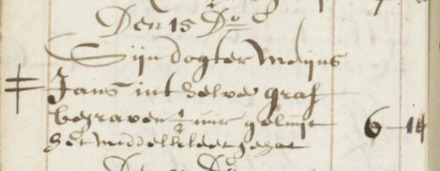 Den 15 Do
Sijn dogter Meijns
Jans int selve graf
begraven ½ uur geluijt
het middelkleet gehat 6-14